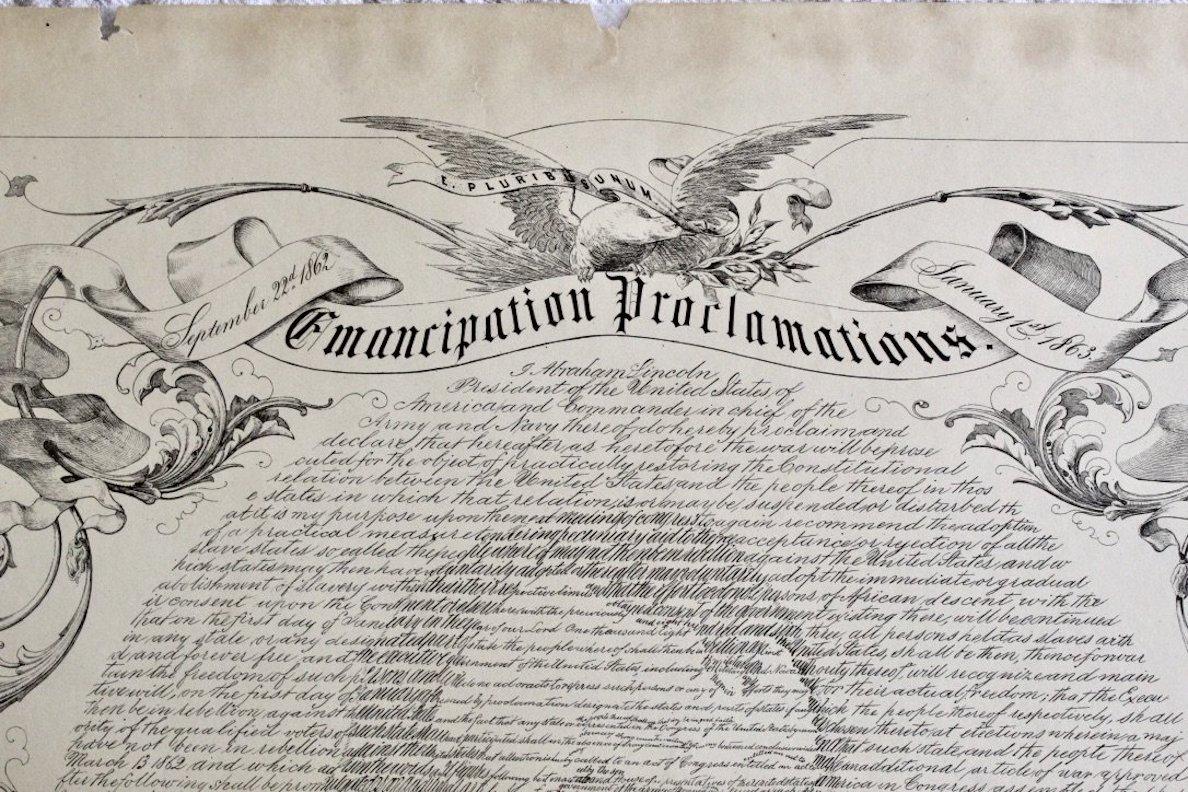 E PLURIBUS UNUM
September 22d. 1862
Emancipation Proclamations.
January 1st 1863.
I, Abraham Lincoln,
President of the United States of
America, and Commander in chief of the
Army and Navy thereof do hereby proclaim and
declare, that hereafter, as heretofore the war will be prose
cuted for the object of practically restoring the Constitutional
relation between the United States and the people thereof in thos
e states in which that relation, is or may be, suspended, or disturbed th
at it is my purpose upon the next meeting of congress to again recommend the adoption
of a practical measure tendering pecuniary aid to the free acceptance or rejection of all the
slave states so called the people whereof may not then be in rebellion against the United States, and w
hich states may then have voluntarily adopted or thereafter may voluntarily adopt the immediate or gradual
abolishment of slavery within their respective limits and that the effort to colonize persons of African descent with the
ir consent upon the Continent or elsewhere with the previously obtained consent of the government existing there, will be continued
that on the first day of January in the year of our Lord One thousand and eight hundred and sixty three, all persons held as slaves with
in, any state, or any designated part of a state the people whereof shall then be in rebellion against the United States, shall be then, thenceforwar
d, and forever free, and the executive government of the United States, including the Military and Naval authority thereof will recognize and main
tain the freedom of such persons and will do no act or acts to repress such persons or any of them in any efforts they may make for their actual freedom; that the Execu
tive will, on the first day of January aforesaid by proclamation designate the states and parts of states if any in which the people thereof respectively, shall
then be in rebellion, against the United States and the fact that any state or
ority of the qualified voters of such state shall have participated shall in the absence of strong
chosen thereto at elections wherein a maj
have not been in rebellion against the United States
that such state and the people thereof
March 13 1862, and which act
an additional article of war approved
America in Congress assembled